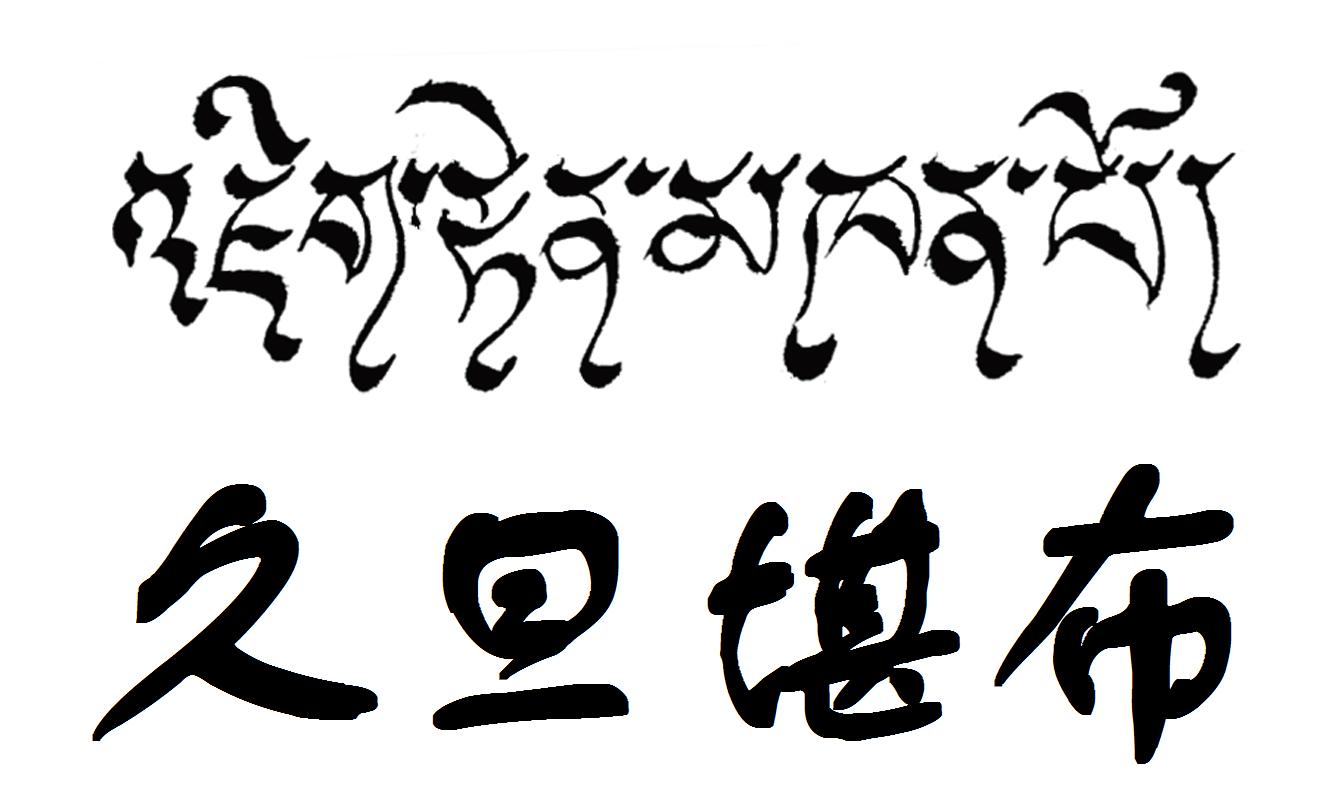 འཇིག་རྟེན་མཁན་པོ།
久旦堪布